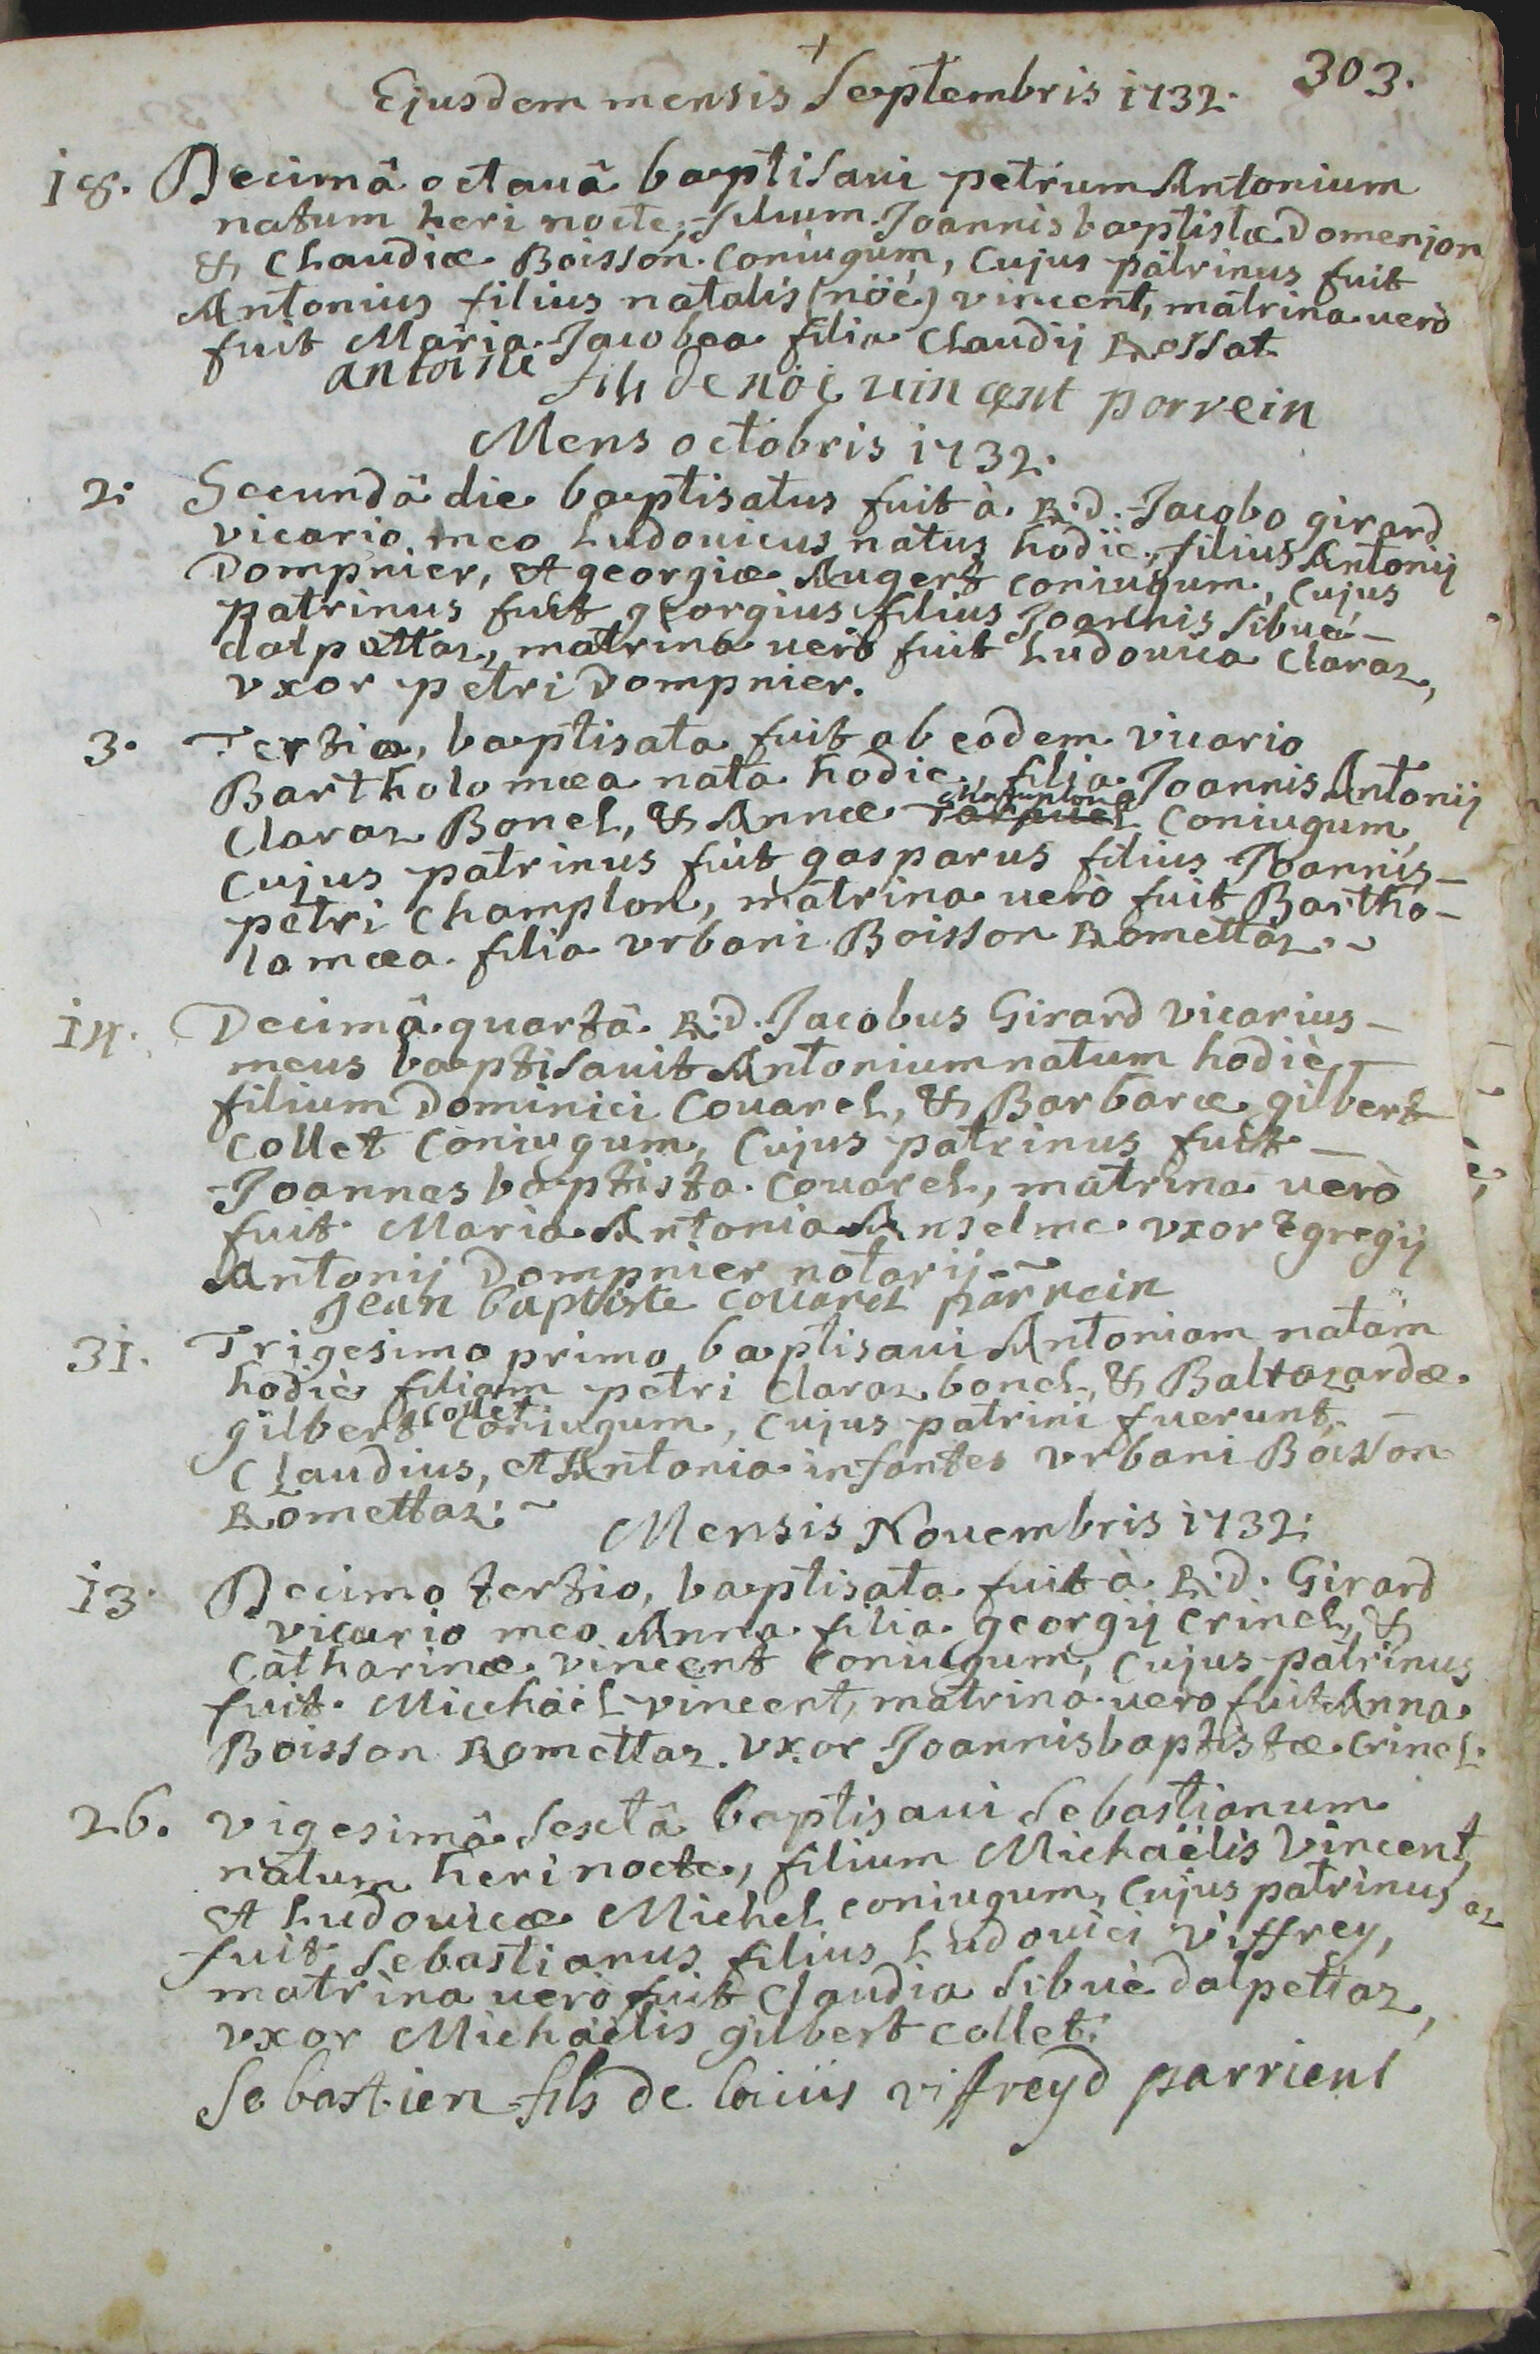 Ejusdem mensis Septembris 1732. 303.
18. Decimâ octauâ baptisaui petrum Antonium
natum heri nocte, filium Joannis baptistæ Domenjon
& Claudiæ Boisson Coniugum, Cujus patrinus fuit
Antonius filius natalis (nöé) vincent, matrina uerò
fuit Maria Jacobea filia Claudij Rossat
antoine fils de nöé uincent parrein
Mens octobris 1732.
2. Secundâ die baptisatus fuit à R.d. Jacobo girard
vicario meo Ludouicus natus hodiè, filius Antonij
Dompnier, et georgiæ Augert coniugum, Cujus
patrinus fuit georgius filius Joannis Sibué-
dalpettaz, matrina uerò fuit Ludouica Claraz,
vxor petri Dompnier.
3. Tertia, baptisata fuit ab eodem vicario
Bartholomæa nata hodie, filia Joannis Antonij
Claraz Bonel, & Annæ Champlong Coniugum,
Cujus patrinus fuit gasparus filius Joannis-
petri Champlon, matrina uerò fuit Bartho-
lomæa filia vrbani Boisson Romettaz.~
14. Decimâ quartâ R.d. Jacobus Girard vicarius-
meus baptisauit Antonium natum hodiè,
filium Dominici Couarel, & Barbaræ gilbert
Collet Coniugum, Cujus patrinus fuit-
Joannes baptista Couarel, matrina uerò
fuit Maria Antonia Anselme vxor Egregij
Antonij Dompnier notarij.~
jean baptiste couarel parrein
31. Trigesimo primo baptisaui Antoniam natam
hodiè filiam petri Claraz bonel, & Baltazardæ
gilbert Collet Coniugum, Cujus patrini fuerunt,-
Claudius, et Antonia infantes vrbani Boisson
Romettaz:~ Mensis Nouembris 1732:
13. Decimo tertio, baptisata fuit à R.d. Girard
vicario meo Anna filia georgij Crinel, &
Catharinæ vincent Coniugum, Cujus patrinus
fuit Micchäel vincent, matrina uero fuit Anna
Boisson Romettaz vxor Joannisbaptistæ Crinel.
26. Vigesimâ Sextâ baptisaui Sebastianum
natum heri nocte, filium Michaëlis Vincent,
et Ludouicæ Michel coniugum, Cujus patrinus
fuit Sebastianus filius Ludouici Viffrey,
matrina uerò fuit Claudia Sibué dalpettaz,
vxor Michaëlis gilbert collet:
Sebastien fils de loiüis viffreyd parrient